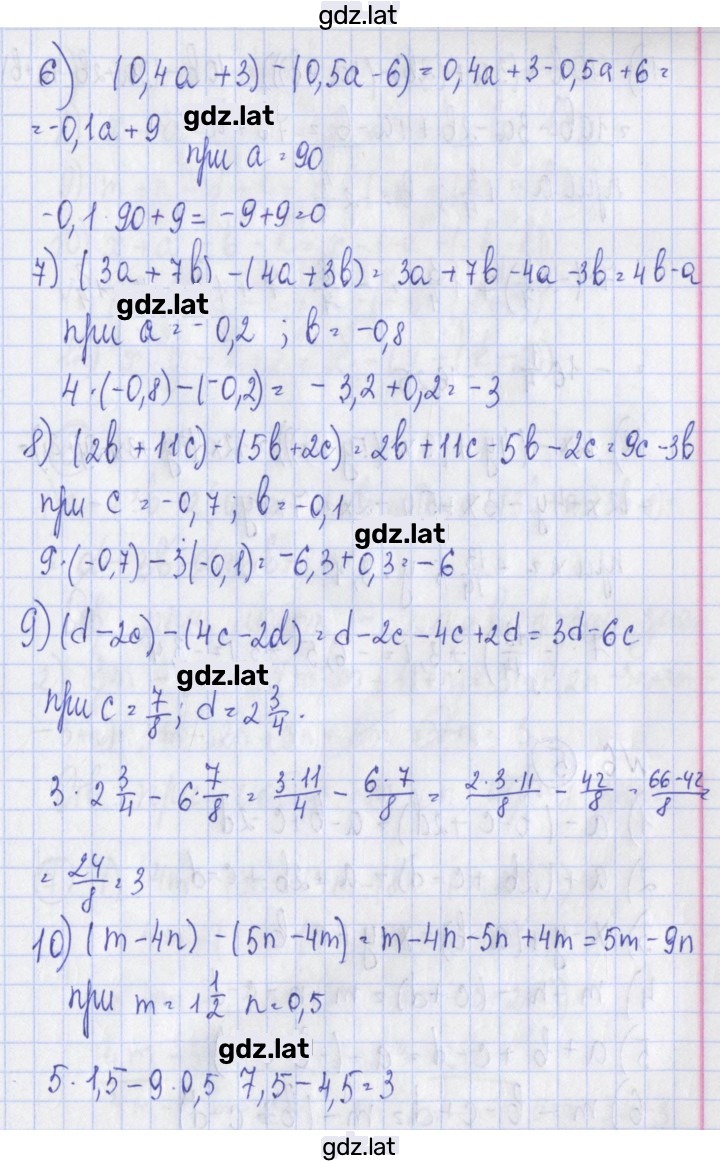 gdz.lat
6) (0,4a + 3) - (0,5a - 6) = 0,4a + 3 - 0,5a + 6 =
= -0,1a + 9 gdz.lat
при a = 90
-0,1 · 90 + 9 = -9 + 9 = 0
7) (3a + 7b) - (4a + 3b) = 3a + 7b - 4a - 3b = 4b - a
gdz.lat
при a = -0,2 ; b = -0,8
4 · (-0,8) - (-0,2) = -3,2 + 0,2 = -3
8) (2b + 11c) - (5b + 2c) = 2b + 11c - 5b - 2c = 9c - 3b
при c = -0,7 ; b = -0,1
gdz.lat
9 · (-0,7) - 3(-0,1) = -6,3 + 0,3 = -6
9) (d - 2c) - (4c - 2d) = d - 2c - 4c + 2d = 3d - 6c
gdz.lat
при c = 7/8 ; d = 2 3/4 .
3 · 2 3/4 - 6 · 7/8 = 3·11/4 - 6·7/8 = 2·3·11/8 - 42/8 = 66-42/8 =
= 24/8 = 3
10) (m - 4n) - (5n - 4m) = m - 4n - 5n + 4m = 5m - 9n
при m = 1 1/2 n = 0,5
gdz.lat
5 · 1,5 - 9 · 0,5 7,5 - 4,5 = 3
gdz.lat